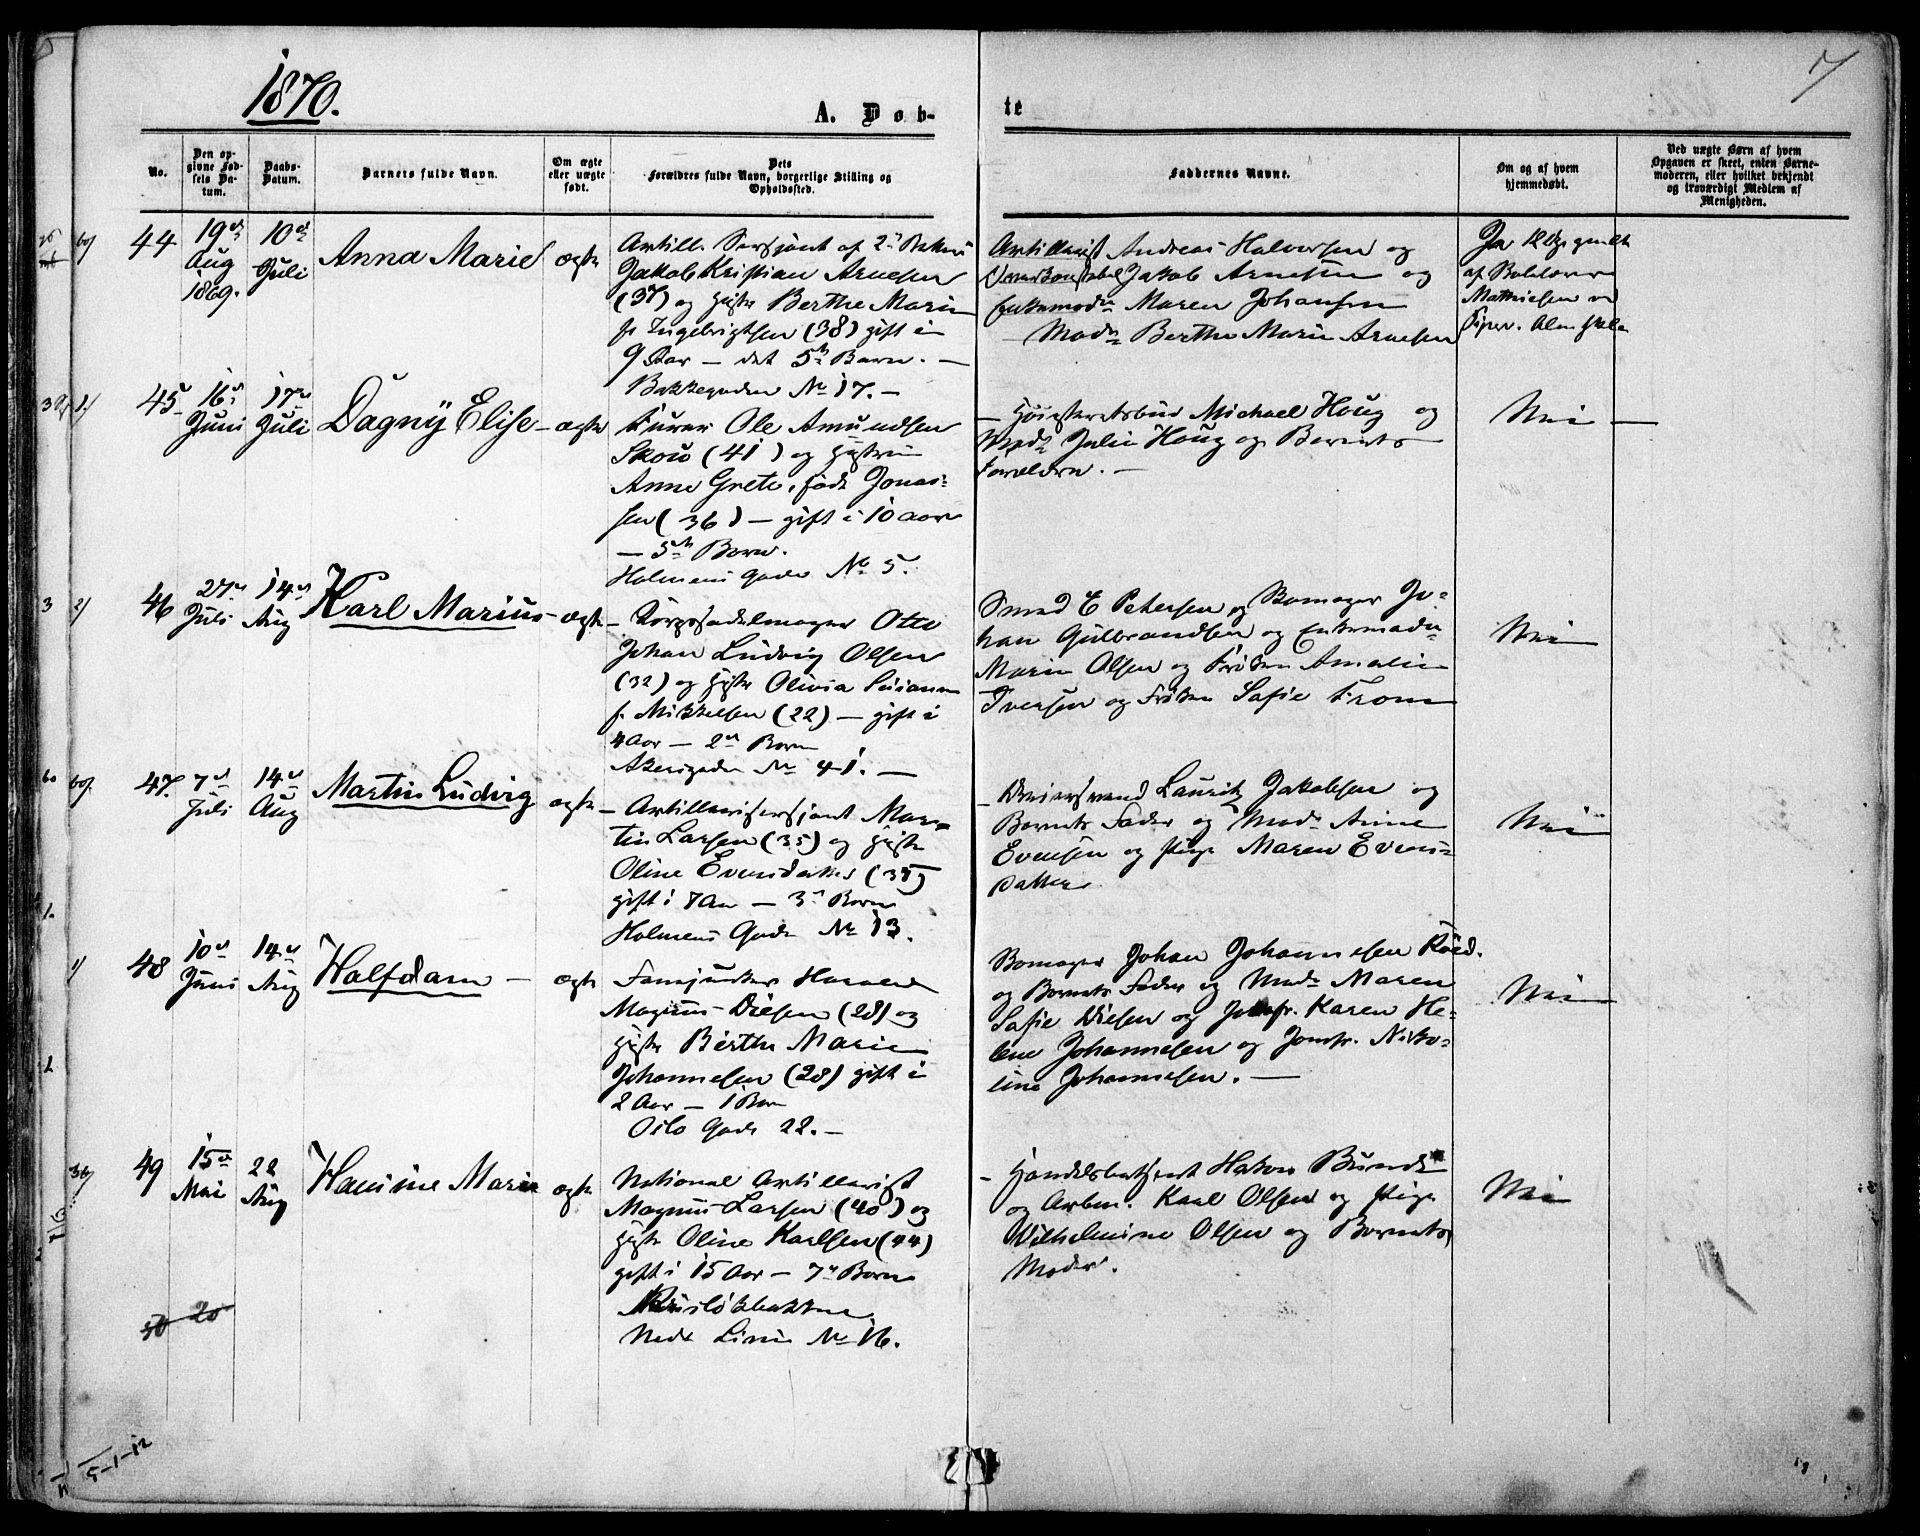 1870.
7
A. Døb-
te
No.
Den op-
givne Fød-
sels Da-
tum.
Daabs-
Datum.
Barnets fulde Navn.
Om ægte
eller uægte
født.
Dets
Forældres fulde Navn, borgerlige Stilling og
Opholdssted.
Faddernes Navne.
Om og af hvem
hjemmedøbt.
Ved uægte Børn af hvem
Opgaven er skeet, enten Barne-
moderen, eller hvilket bekjendt
og troværdigt Medlem af
Menigheden.
44
19de
Aug
1869.
10de
Juli
Anna Marie
ægte
Artill. Sersjant af 2n
Jakob Kristian Arnesen
(37) og Hustr Berthe Marie
f. Ingebrigtsen (38) gift i
9 Aar — det 5te Barn. —
Bakkegaden No 17. —
Artillerist Andreas Halvorsen og
Jakob Arnesen og
Enkemadm Maren Johansen
— Madm Berthe Marie Arnesen
Ja
af
Mathiesen
45
16de
Juni
17de
Juli
Dagny Elise —
ægte
Kurer Ole Amundsen
Skou (41) og Hustru
Anne Grete, født Jonas-
sen (36) — gift i 10 aar
— 5te Barn.
Holmens Gade No 5.
— Høiesteretsbud Michael Houg og
Madm Julie Houg og Barnets
Forældre. —
Nei —
46
27de
Juli
14de
Aug
Karl Marius —
ægte
— Korpssadelmager Otto
Johan Ludvig Olsen
(32) og Hustr Olivia
f. Mikkelsen (22) — gift i
4 Aar — 2det Barn
Akersgaden No 41. —
Smed E Petersen og Bomager Jo-
han Gulbrandsen og Enkemadm
Marie Olsen og Frøken Amalie
Iversen og Frøken Sofie From
Nei
47.
7de
Juli
14de
Aug
Martin Ludvig
ægte
— Artillerisersjant Mar-
tin Larsen (35) og Hustr
Oline Evensdatter (35)
gift i 7 Aar — 3die Barn
Holmens Gade No 13.
— Lauritz Jakobsen og
Barnets Fader og Madm Anne
Evensen og Pige Maren Evens-
datter.
Nei
48
10de
Juni
14de
Aug
Halfdan —
ægte
Fanejunker Harald
Magnus Diesen (28) og
Hustr Birthe Marie
Johannesen (28) gift i
2 Aar — 1 Barn
Oslo Gade 22. —
Bomager Johan Johannesen Röed.
og Barnets Fader og Madm Maren
Sofie Diesen og Jomfr. Karen He-
lene Johannesen og Jomfr. Niko-
line Johannesen. —
Nei
49
15de
Mai
22
Aug
Hansine Marie
ægte
National Artillerist
Magnus Larsen (40) og
Hustr Oline Karlsen (44)
gift i 15 Aar — 7de Barn
Ruseløkbakken
Nedr Linie No 16.
— Handelsbetjent Hakon Bunde
og Arbm. Karl Olsen og Pige
Wilhelmine Olsen og Barnets
Moder.
Nei
50 20
5-1-12